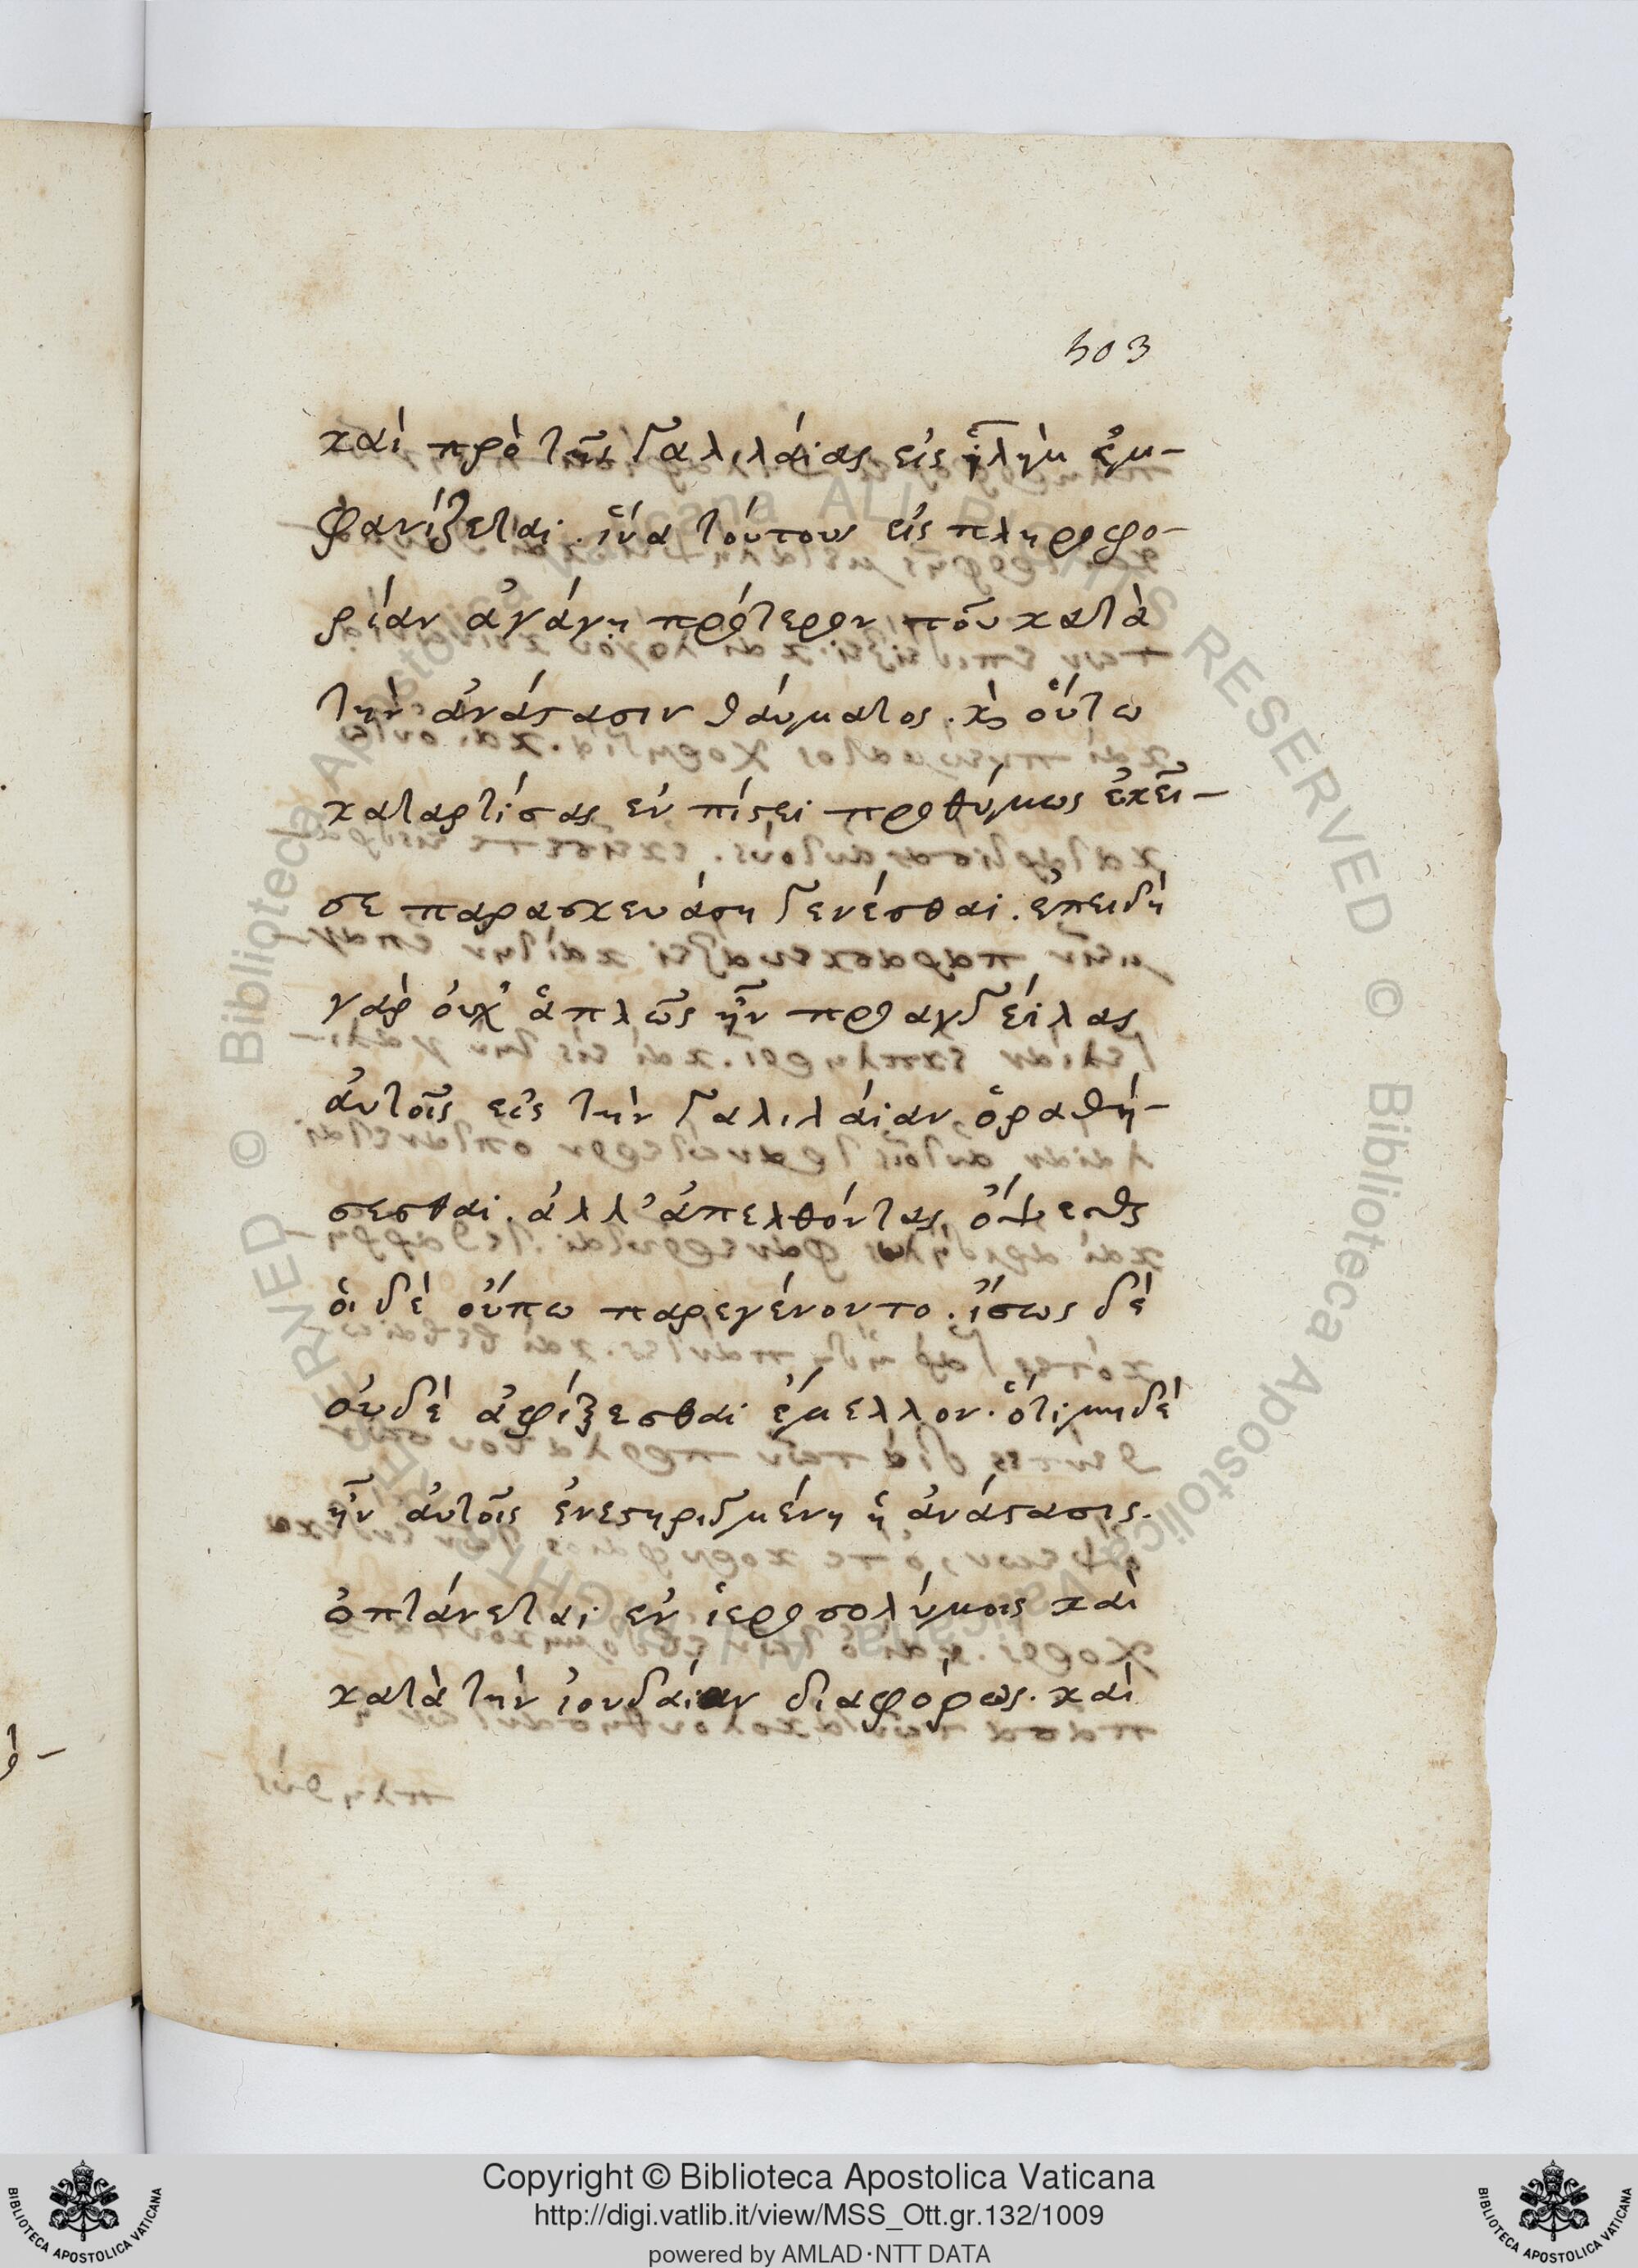 503
καὶ πρὸ τῆς Γαλιλαίας εἰς ἱλημ ἐμ-
φανίζεται. ἵνα τούτους εἰς πληροφο-
ρίαν ἀγάγῃ πρότερον τοῦ κατὰ
τὴν ἀνάστασιν θαύματος. κ οὕτω
καταρτίσας ἐν πίστει προθύμως ἐκεῖ-
σε παρασκευάσῃ γενέσθαι. ἐπειδὴ
γὰρ οὐχ ἁπλῶς ἦν προαγγείλας
αὐτοῖς εἰς τὴν Γαλιλαίαν ὁραθή-
σεσθαι. ἀλλ' ἀπελθόντας ὄψεσθαι
οἱ δὲ οὔπω παρεγένοντο. ἴσως δὲ
οὐδὲ ἀφίξεσθαι ἔμελλον. ὅτι μηδὲ
ἦν αὐτοῖς ἐνεστηριγμένη ἡ ἀνάστασις.
ὀπτάνεται ἐν ἱεροσολύμοις καὶ
κατὰ τὴν ἰουδαίαν διαφόρως. καὶ
Copyright © Biblioteca Apostolica Vaticana
http://digi.vatlib.it/view/MSS_Ott.gr.132/1009
powered by AMLAD·NTT DATA
BIBLIOTECA APOSTOLICA VATICANA
BIBLIOTECA APOSTOLICA VATICANA